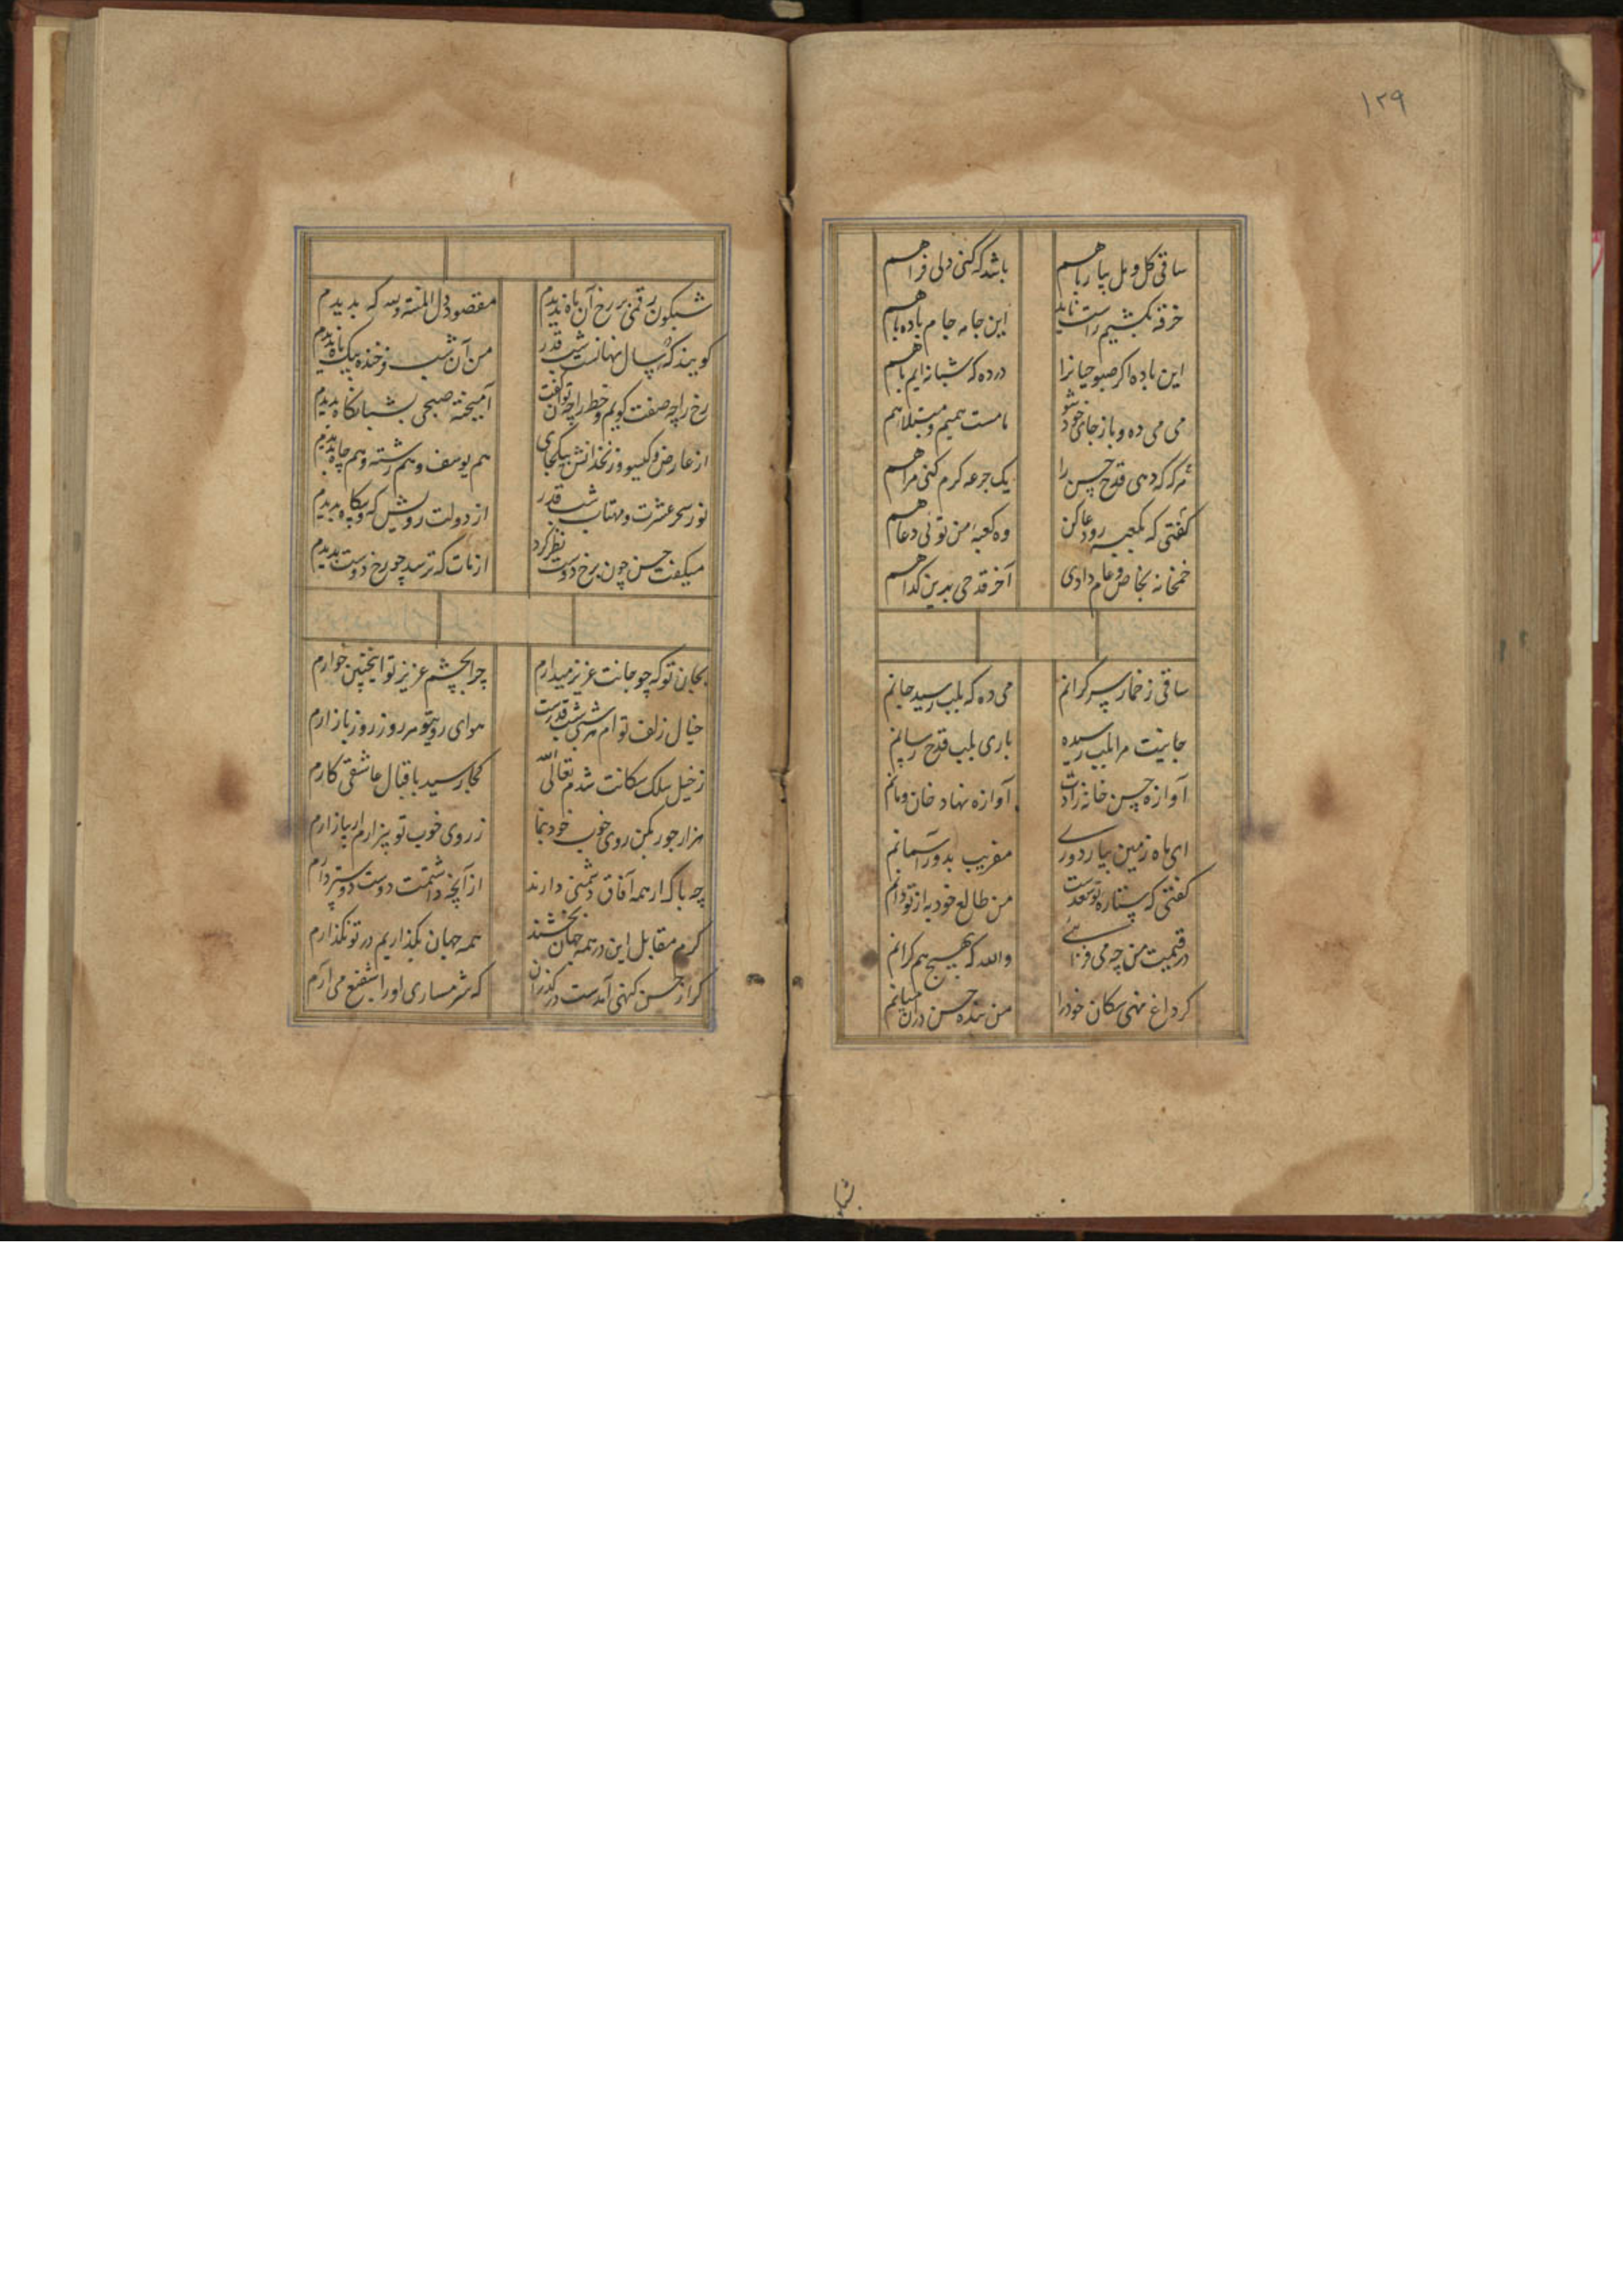 ۱۲۹
ساقی گل و مل بیار باهم باشد که کنی دلی فراهم
خرقه نکشیم راست ناید این جامه جام باده باهم
این باده اگر صبوحیانرا درده که شبانه ایم باهم
می می ده و باز جای خود شو ما مست همیم و مبتلا هم
هرگه که دهی قدح حسن را یک جرعه کرم کنی مرا هم
گفتی که بکعبه رو دعا کن وه کعبه من توئی دعا هم
خمخانه بخاص و عام دادی آخر قدحی بدین گدا هم
ساقی ز خمار سر گرانم می ده که بلب رسید جانم
جانیت مرا بلب رسیده باری بلب قدح رسانم
آوازه حسن خانه زادت آوازه نهاد خان و مانم
ای ماه زمین بیار دوری مفریب بدور آسمانم
گفتی که ستاره تو سعدست من طالع خود به از تو دانم
در قیمت من چه می فزائی والله که بهیچ هم گرانم
گر داغ نهی سگان خود را من بنده حسن در آن میانم
شبگون رقمی بر رخ آن ماه بدیدم مقصود دل المنة لله که بدیدم
گویند که هر سال نهانست شب قدر من آن شب فرخنده بیک ماه بدیدم
رخ را چه صفت گویم و خط را چه توان گفت آمیخته صبحی بشبانگاه بدیدم
از عارض و گیسو و زنخدانش بیکجای هم یوسف و هم رشته و هم چاه بدیدم
نور سحر عشرت و مهتاب شب قدر از دولت رویش که و بیگاه بدیدم
میگفت حسن چون برخ دوست نظر کرد از مات که ترسد چو رخ دوست بدیدم
بجان تو که چو جانت عزیز میدارم چرا بچشم عزیز تو اینچنین خوارم
خیال زلف تو ام هر شبی شب قدرست هوای روی تو هر روز روز بازارم
ز خیل سلک سگانت شدم تعالی الله کجا رسید باقبال عاشقی کارم
هزار جور بکن روی خوب خود بنما ز روی خوب تو بیزارم ار بیازارم
چه باک ار همه آفاق دشمنی دارند از آنچه داشتمت دوست دوستر دارم
گرم مقابل این در همه جهان بخشند همه جهان بگذاریم در تو نگذارم
گر از حسن گنهی آمدست در گذران که شرمساری او را شفیع می آرم